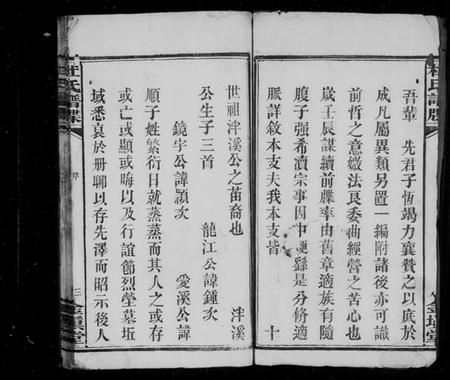 吾輩　先君子恆竭力襄贊之以底於
成凡屬異類另置一編附諸後亦可識
前哲之意嫩法良委曲經營之苦心也
歲壬辰謀續前牒率由舊章適族有隨
腹子强希瀆宗事因中硬繇是分脩適
脈詳敘本支夫我本支皆　　　十
世祖泮溪公之苗裔也　　　泮溪
公生子三首　　龍江公諱鍾次
鏡宇公諱　次　　愛溪公諱
順子姓繁衍日就蒸蒸而其人之或存
或亡或顯或晦以及行誼節烈塋墓坵
域悉裒於册聊以存先澤而昭示後人
杜氏譜牒
序
三
杜氏譜牒